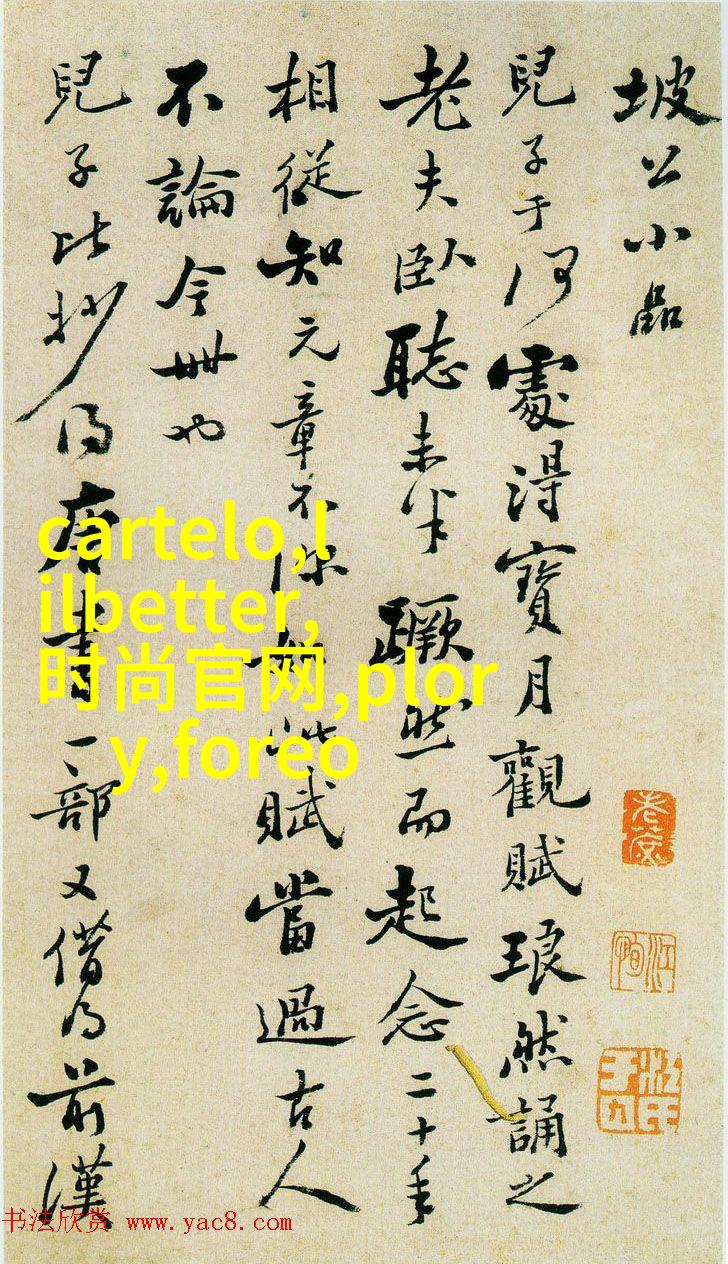 坡公小品
兒子于何處得寶月觀賦琅然誦之
老夫臥聽未半蹶然而起念二十年
相從知元章不深如此賦當過古人
不論今世也
兒子比抄得唐書一部又借得前漢
cartelo,l
ilbetter,
时尚官网,plor
y,foreo
书法欣赏 www.yac8.com